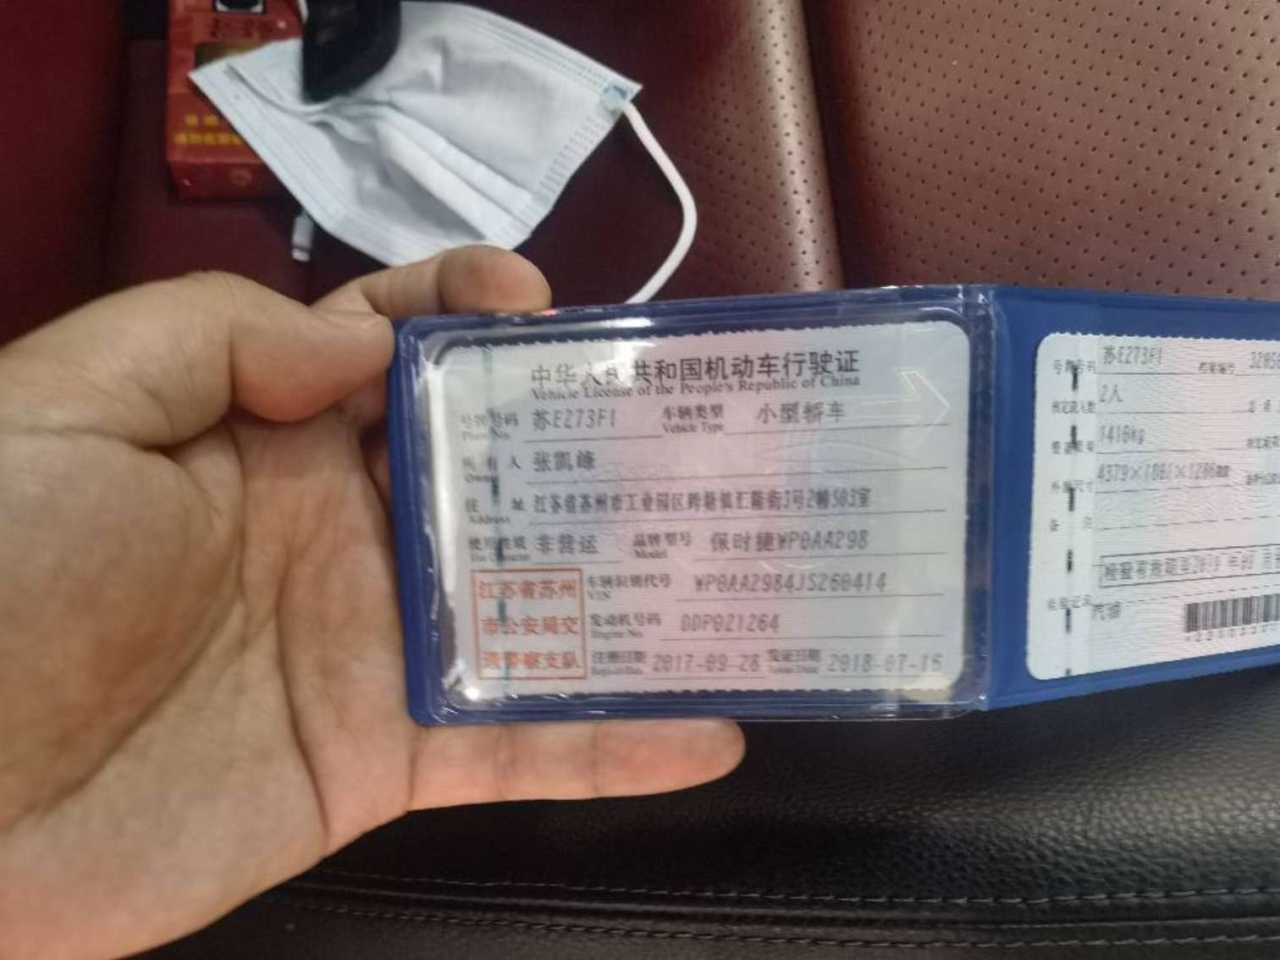 中华人民共和国机动车行驶证
Vehicle License of the People's Republic of China
号牌号码 苏E273F1 车辆类型 小型轿车
Plate No. Vehicle Type
所有人 张凯峰
Owner
住址 江苏省苏州市工业园区跨塘镇汇隆街3号2幢503室
Address
使用性质 非营运 品牌型号 保时捷WP0AA298
Use Character Model
江苏省苏州市公安局交通警察支队
车辆识别代号 WP0AA2984JS260414
VIN
发动机号码 DDP021264
Engine No.
注册日期 2017-09-28 发证日期 2018-07-16
Register Date Issue Date
号牌号码 苏E273F1 档案编号
核定载人数 2人
整备质量 1410kg
外廓尺寸 4379×1801×1286mm
备注
检验有效期至2019年09月
检验记录 汽油